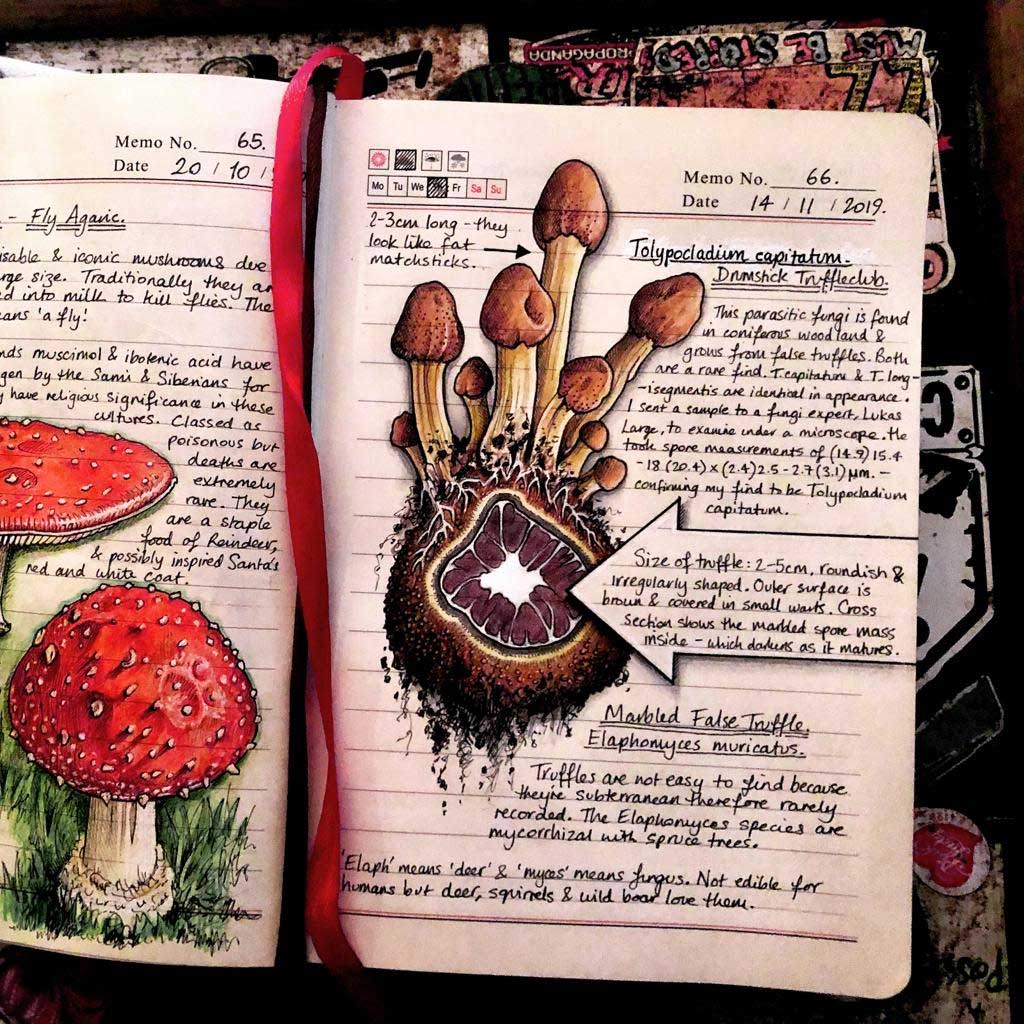 Memo No. 65.
Date 20 / 10 /
- Fly Agaric.
isable & iconic mushrooms due
rge size. Traditionally they ar
ed into milk to kill flies. The
eans 'a fly!
nds muscimol & ibotenic acid have
gen by the Sami & Siberians for
y have religious significance in these
cultures. Classed as
poisonous but
deaths are
extremely
rare. They
are a staple
food of Reindeer,
& possibly inspired Santa's
red and white coat.
Mo Tu We Fr Sa Su
Memo No. 66.
Date 14 / 11 / 2019.
2-3cm long - they
look like fat
matchsticks.
Tolypocladium capitatum.
Drumstick Truffleclub.
This parasitic fungi is found
in coniferous woodland &
grows from false truffles. Both
are a rare find. T.capitatum & T. long-
-isegmentis are identical in appearance.
I sent a sample to a fungi expert, Lukas
Large, to examine under a microscope. He
took spore measurements of (14.9) 15.4
-18 (20.4) x (2.4) 2.5 - 2.7 (3.1) µm. -
confirming my find to be Tolypocladium
capitatum.
Size of truffle: 2-5cm, roundish &
irregularly shaped. Outer surface is
brown & covered in small warts. Cross
section shows the marbled spore mass
inside - which darkens as it matures.
Marbled False Truffle.
Elaphomyces muricatus.
Truffles are not easy to find because
they're subterranean therefore rarely
recorded. The Elaphomyces species are
mycorrhizal with spruce trees.
'Elaph' means 'deer' & 'myces' means fungus. Not edible for
humans but deer, squirrels & wild boar love them.
MUST BE STOPPED
PROPAGANDA
77